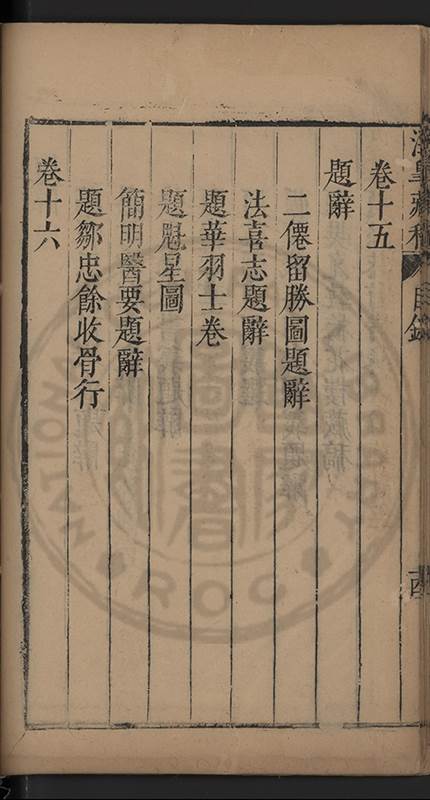 卷十五
題辭
二僊留勝圖題辭
法喜志題辭
題華羽士卷
題魁星圖
簡明醫要題辭
題鄒忠餘收骨行
卷十六